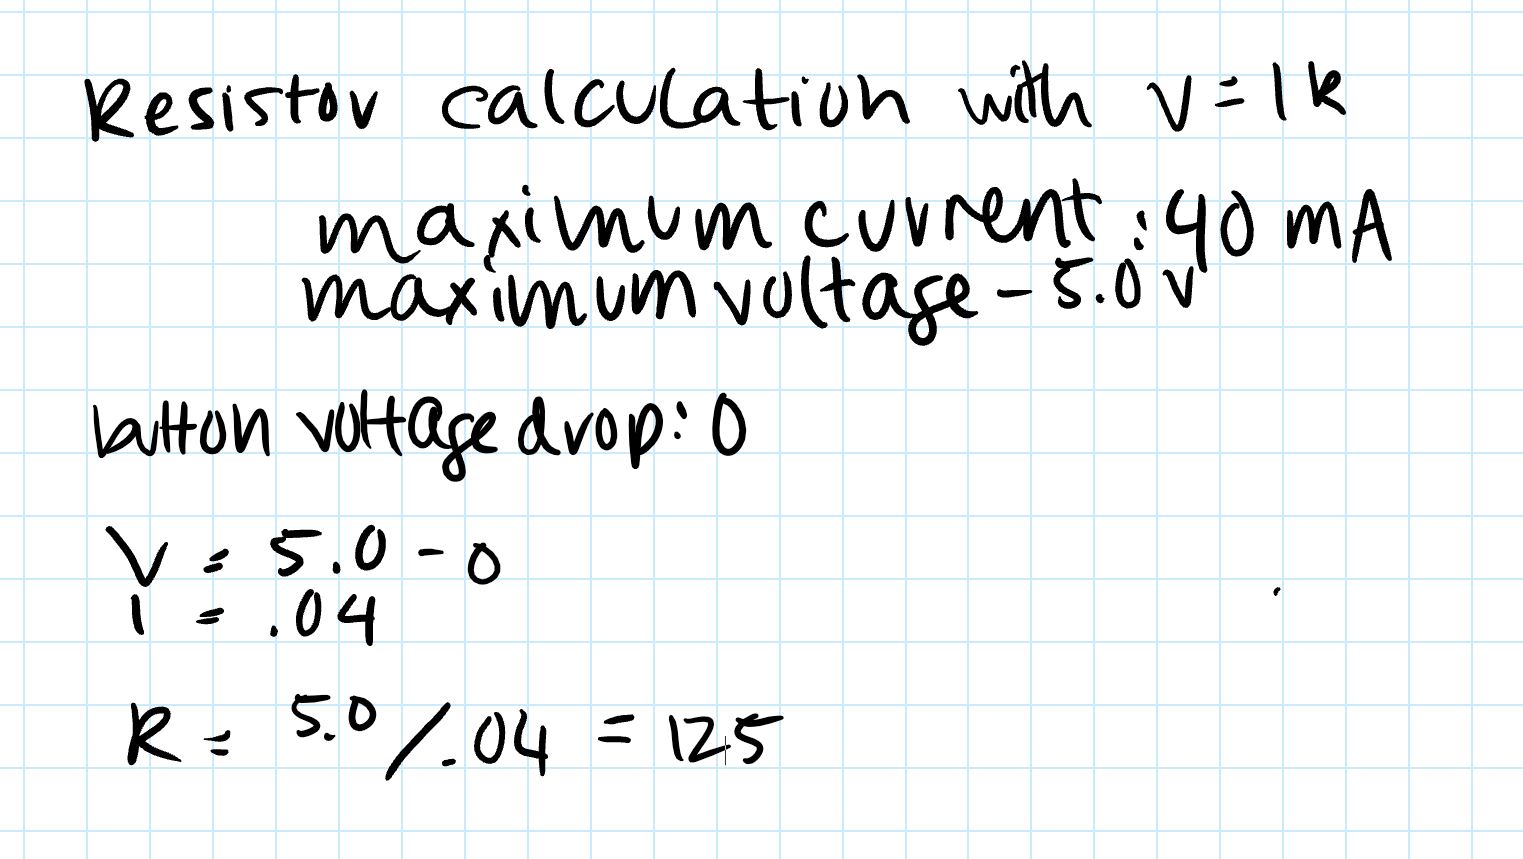 Resistor calculation with V = 1k
maximum current : 40 mA
maximum voltage - 5.0 V
button voltage drop: 0
V = 5.0 - 0
I = .04
R = 5.0/.04 = 125